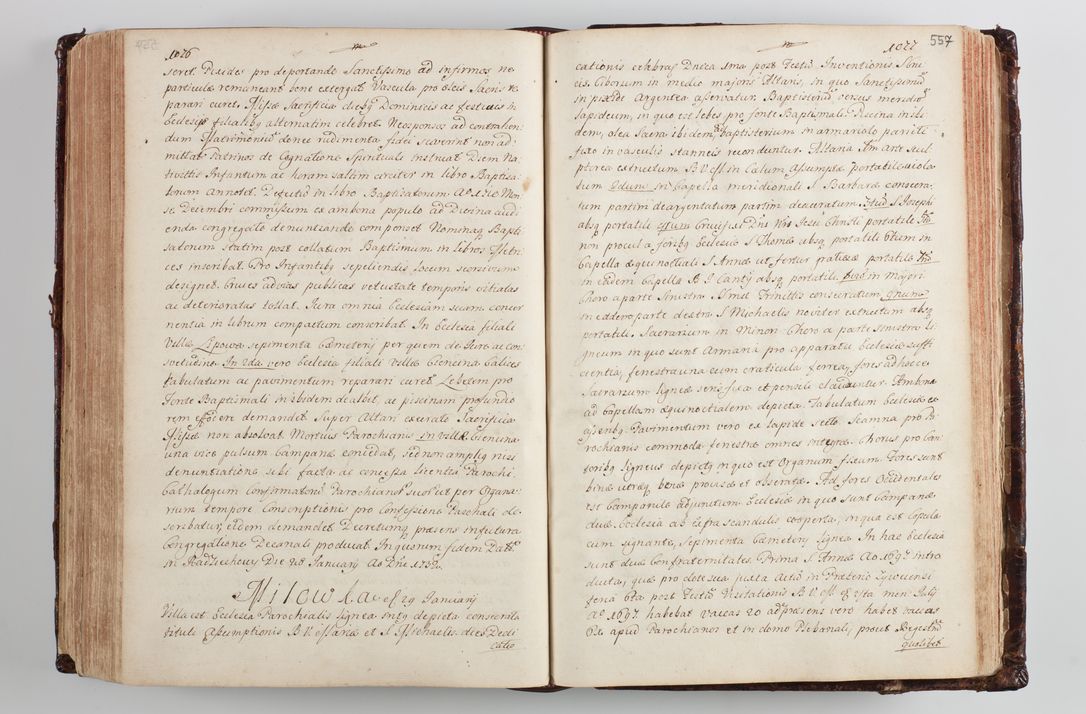 1076
seret. Pixides pro deportando Sanctissimo ad infirmos ne
particulæ remaneant bene extergat. Vascula pro oleis Sacris re
parari curet. Missæ Sacrificia dieby Dominicis ac festivis in
Ecclesijs filialiby alternatim celebret. Neosponsos ad contrahen-
dum Matrimonium donec rudimenta fidei sciverint non ad-
mittat. Patrinos de Cognatione Spirituali instruat. Diem Na-
tivittis Infantum ac horam saltim circiter in libro Baptisa-
torum Annotet. Defectus in libro Baptisatorum Ao 1710 Men-
se Decembri commissum ex ambona populo ad Divina audi
enda congregato denuntiando componat. Nomina Bapti-
satorum Statim post collatum Baptismum in Libros Metri-
ces inscribat. Pro Infantiby sepeliendis locum seorsivum
designet. Cruces ad vias publicas vetustate temporis vitiatas
ac deterioratas tollat. Jura omnia Ecclesiam suam concer
nentia in librum compactum conscribat. In Ecclesia filiali
Villæ Lipowa sepimenta Cæmeterij per quem de Jure ac con-
svetudine. In 2da vero Ecclesia filiali villæ Ciencina Calices
tabulatum ac pavimentum reparari curet. Lebetem pro
fonte Baptismali inibidem dealbet, ac piscinam profundio
rem effodere demandet. Super Altari execrato Sacrificia
Missæ non absolvat. Mortuis Parochianis in villa Ciencina
una vice pulsum Campanæ concedat, sed non amplius nisi
denuntiatione sibi facta ac concessa licentia Parochi.
Cathalogum Confirmatorū Parochianor suor ut per Organa-
rium tempore Conscriptionis pro Confessione Paschali de-
scribatur, eidem demandet. Decretumq præsens in futura
Congregatione Decanali producat. In quorum fidem Datt.
in Radziechowy Die 28 Januarij Ao Dni 1732.
Milowka ex 29 Januarij
Villa est Ecclesia Parochialis lignea inty depicta consecrata
tituli Assumptionis B.V. Mariæ et S. Michaelis. dies Dedi
catio

1077
557
cationis celebratr Dnica 1ma post Festū Inventionis Snæ
cis. Ciborium in medio majoris Altaris, in quo Sanctissimū
in pixide Argentea asservatur. Baptisteriū versus meridiē
lapideum, in quo est lebes pro fonte Baptismali. Piscina inibi
dem, olea Sacra ibidem, baptisterium in armariolo parieti
fixo in vasculis stanneis reconduntur. Altaria Im arte scul
ptorea extructum B.V.M. in Cælum Assumptæ portatile viola-
tum 2dum in Capella meridionali S. Barbaræ consecra-
tum partim deargentatum partim deauratum. 3tiū S. Josephi
absq portatili 4tum Crucifixi Dni Nri Jesu Christi portatile 5tū
non procul a foriby Ecclesiæ S. Thomæ absq portatili. 6tum in
Capella æquinoctiali S. Annæ ut fertur gratiosæ portatile 7mū
in eadem Capella B. J. Cantij absq portatili. 8vum in Majori
Choro a parte sinistra SSmæ Trinittis consecratum, 9num
in eodem parte dextra S. Michaelis noviter extructum absq
portatili. Sacrarium in Minori Choro a parte sinistra li
gneum in quo sunt Armaria pro apparatu Ecclesiæ suffi
cientia, fenestra una cum craticula ferrea, fores ad hocce
Sacrarium ligneæ seris fixa et pensili clauduntur. Ambona
ad Capellam æquinoctialem depicta. Tabulatum Ecclesiæ ex
asseriby. Pavimentum vero ex lapide secto. Scamna pro Pa
rochianis commoda fenestræ omnes integræ. Chorus pro Can
toriby ligneus depicty in quo est Organum fixum. Fores sunt
binæ utræq benæ provisæ et obseratæ. Ad fores Occidentales
est Campanile adjunctum Ecclesiæ in quo sunt Campanæ
duæ. Ecclesia ab extra scandulis cooperta, in qua est Cupula
cum signante, Sepimenta Cæmeterij lignea. In hac Ecclesia
sunt duæ Confraternitates. Prima S. Annæ Ao 1697 intro
ducta, quæ pro dote sua juxta Actū in Prætorio Zywecensi
feria 6ta post Festū Visitationis B.V.M. & ista men: Julij
Ao 1697. habebat vaccas 20 ad præsens vero habet vaccas
apud Parochianos et in domo Plebanali, prout Regestrū
quolibet